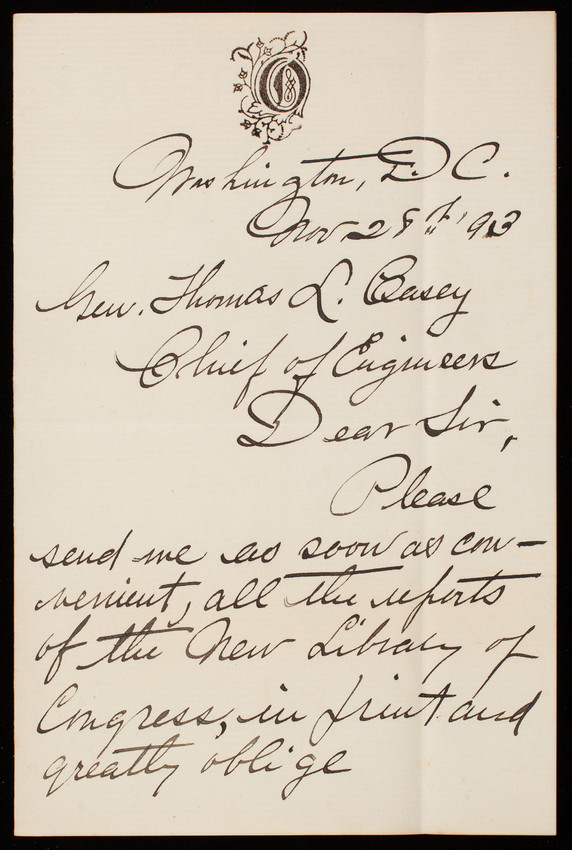 O
Washington, D. C.
Nov. 28th '93
Gen. Thomas L. Casey
Chief of Engineers
Dear Sir,
Please
send me as soon as con-
venient, all the reports
of the New Library of
Congress, in print and
greatly oblige